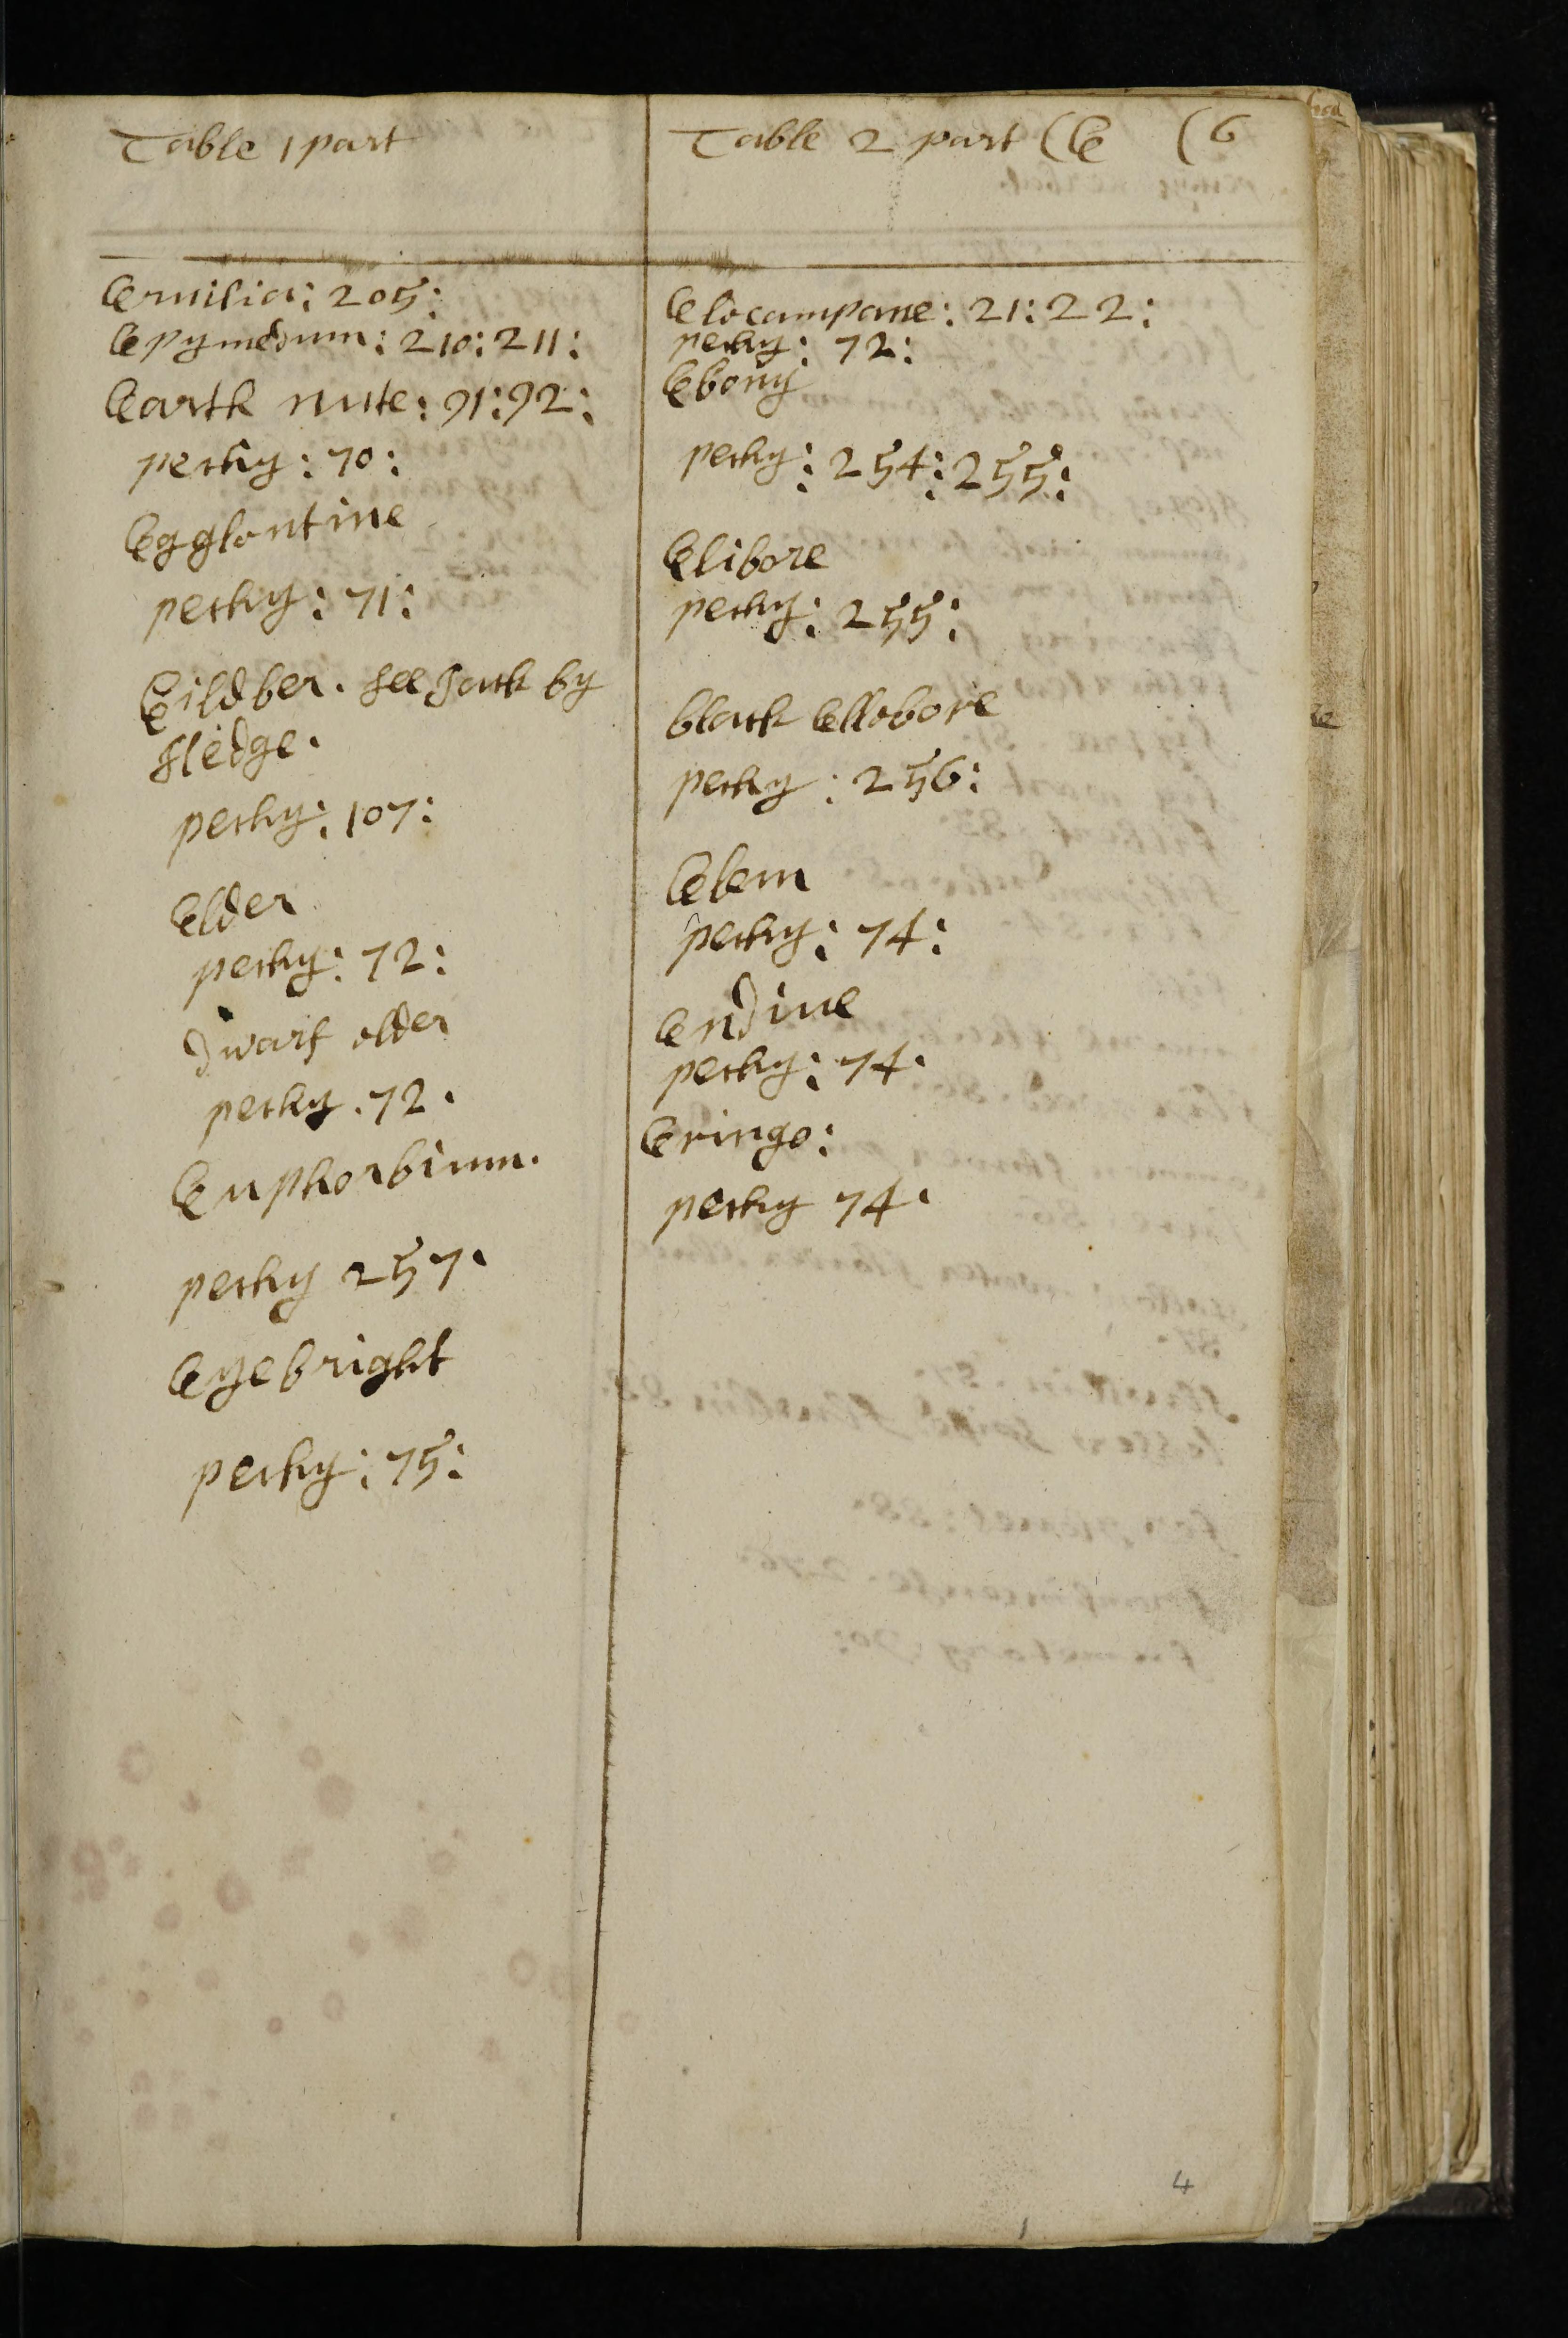 Table 1 part
Eruilia: 205:
Epymedum: 210: 211:
Earth nute: 91: 92:
pechy: 70:
Egglontine
pechy: 71:
Eildber. see Jack by
sledge.
pechy: 107:
Elder
pechy: 72:
dwarf elder
pechy. 72.
Euphorbium.
pechy 257.
Eyebright
pechy: 75:
Table 2 part (E (6
Elocampane: 21: 22:
pechy: 72:
Ebony
pechy: 254: 255:
Elibore
pechy: 255:
black Ellobore
pechy: 256:
Elem
pechy: 74:
Endiue
pechy: 74.
Eringo:
pechy 74.
4